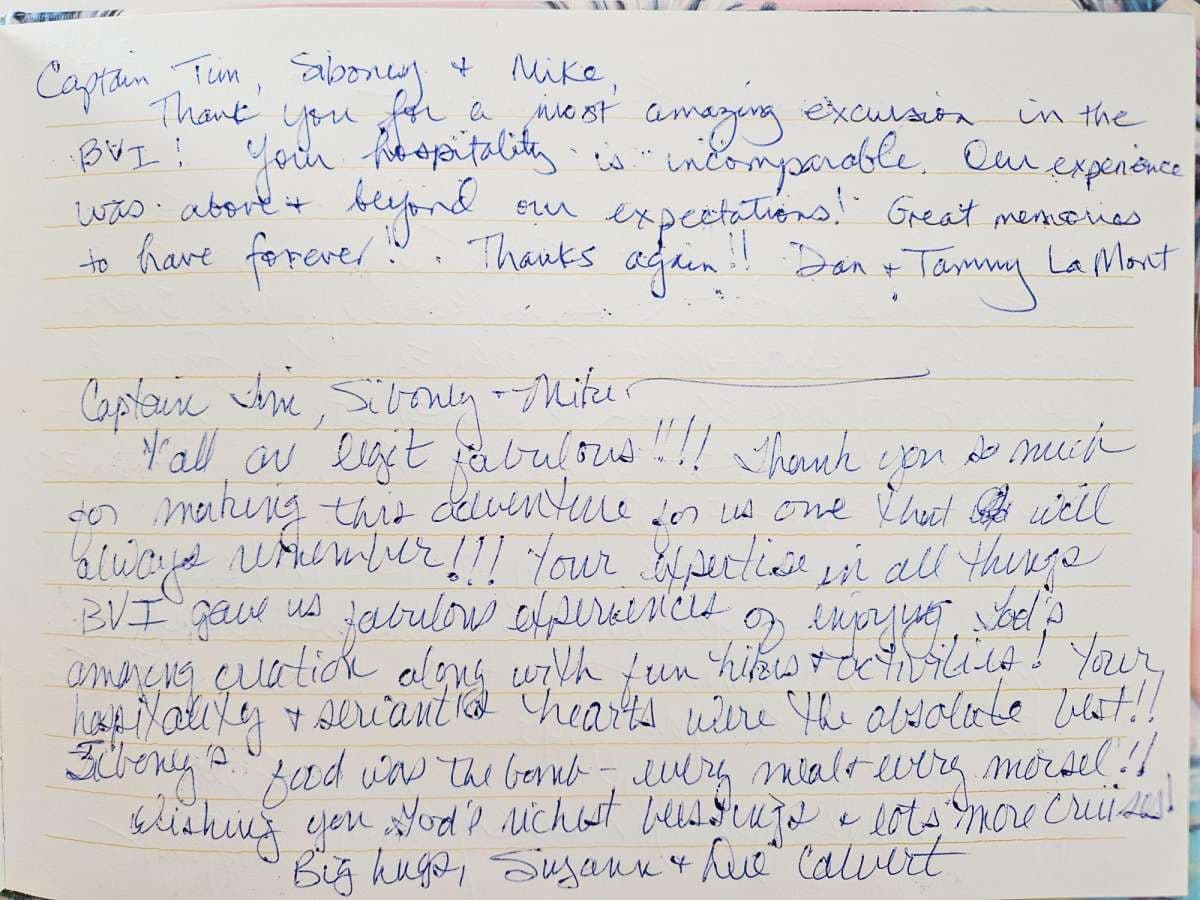 Captain Tim, Siboney + Mike,
Thank you for a most amazing excursion in the
BVI! Your hospitality is incomparable. Our experience
was above + beyond our expectations! Great memories
to have forever! Thanks again!! Dan + Tammy LaMont
Captain Tim, Siboney + Mike
Y'all are legit fabulous!!!! Thank you so much
for making this adventure for us one that will
always remember!!! Your expertise in all things
BVI gave us fabulous experiences of enjoying God's
amazing creation along with fun hikes + activities! Your
hospitality + servant hearts were the absolute best!!
Siboney's food was the bomb - every meal + every morsel!!
Wishing you God's richest blessings + lots more cruises!
Big hugs, Suzann + Calvert